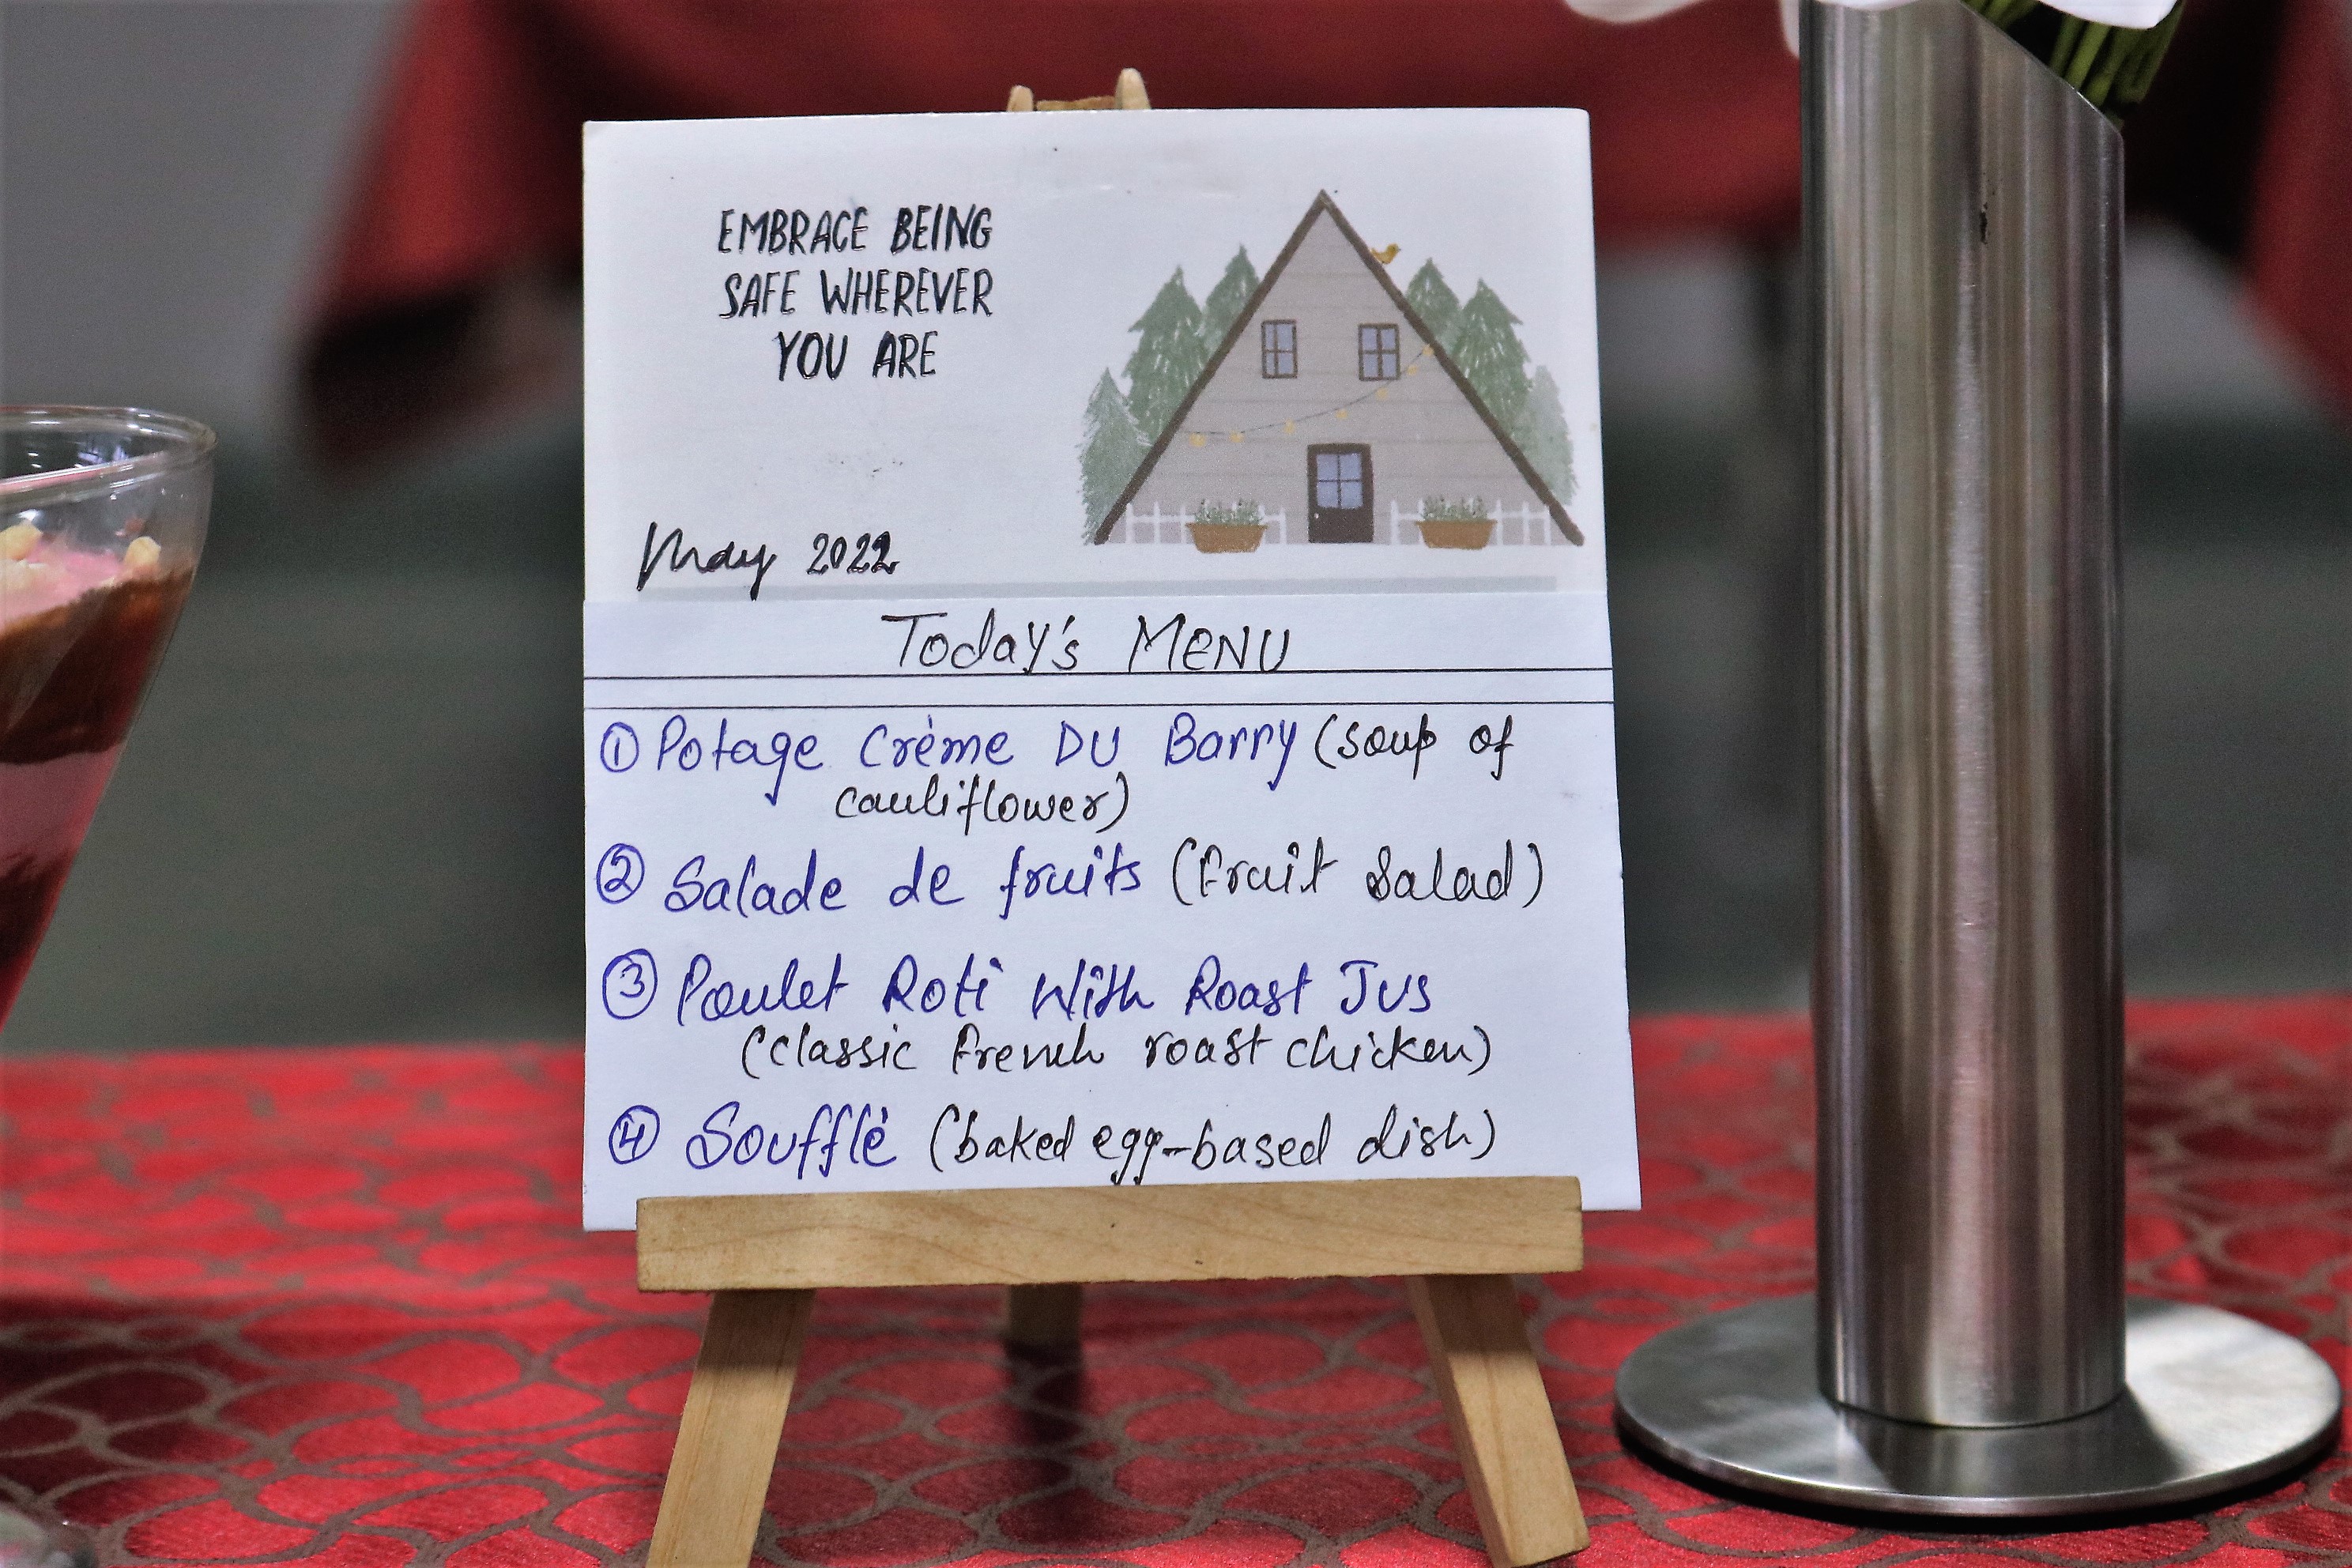 EMBRACE BEING
SAFE WHEREVER
YOU ARE
May 2022
Today's MENU
① Potage Crème DU Barry (soup of
cauliflower)
② Salade de fruits (fruit Salad)
③ Poulet Roti With Roast Jus
(classic french roast chicken)
④ Soufflé (baked egg-based dish)